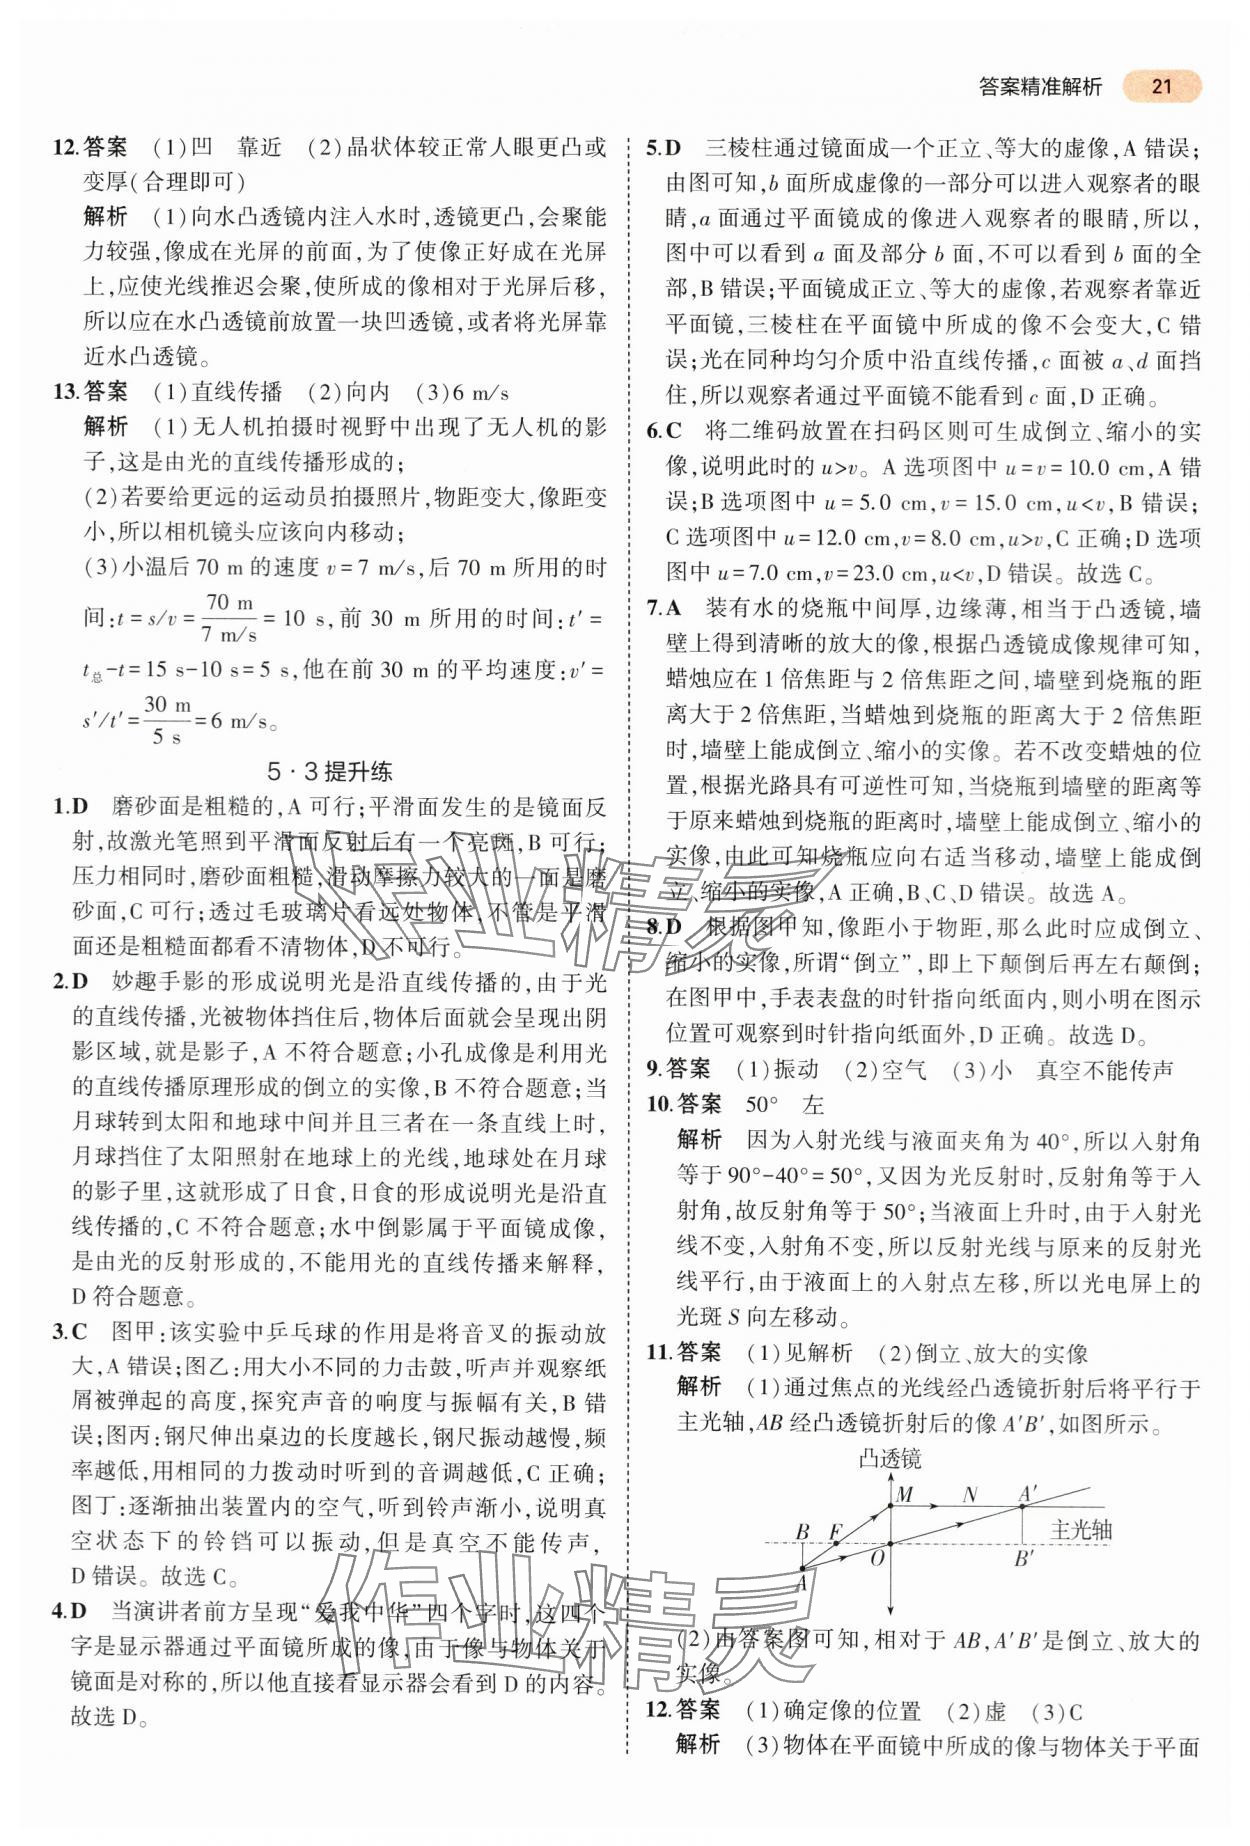 答案精准解析 21
12.答案 (1)凹 靠近 (2)晶状体较正常人眼更凸或
变厚(合理即可)
解析 (1)向水凸透镜内注入水时,透镜更凸,会聚能
力较强,像成在光屏的前面,为了使像正好成在光屏
上,应使光线推迟会聚,使所成的像相对于光屏后移,
所以应在水凸透镜前放置一块凹透镜,或者将光屏靠
近水凸透镜。
13.答案 (1)直线传播 (2)向内 (3)6 m/s
解析 (1)无人机拍摄时视野中出现了无人机的影
子,这是由光的直线传播形成的;
(2)若要给更远的运动员拍摄照片,物距变大,像距变
小,所以相机镜头应该向内移动;
(3)小温后70 m的速度v=7 m/s,后70 m所用的时
间:t=s/v=70 m/7 m/s=10 s,前30 m所用的时间:t′=
t总-t=15 s-10 s=5 s,他在前30 m的平均速度:v′=
s′/t′=30 m/5 s=6 m/s。
5·3提升练
1.D 磨砂面是粗糙的,A可行;平滑面发生的是镜面反
射,故激光笔照到平滑面反射后有一个亮斑,B可行;
压力相同时,磨砂面粗糙,滑动摩擦力较大的一面是磨
砂面,C可行;透过毛玻璃片看远处物体,不管是平滑
面还是粗糙面都看不清物体,D不可行。
2.D 妙趣手影的形成说明光是沿直线传播的,由于光
的直线传播,光被物体挡住后,物体后面就会呈现出阴
影区域,就是影子,A不符合题意;小孔成像是利用光
的直线传播原理形成的倒立的实像,B不符合题意;当
月球转到太阳和地球中间并且三者在一条直线上时,
月球挡住了太阳照射在地球上的光线,地球处在月球
的影子里,这就形成了日食,日食的形成说明光是沿直
线传播的,C不符合题意;水中倒影属于平面镜成像,
是由光的反射形成的,不能用光的直线传播来解释,
D符合题意。
3.C 图甲:该实验中乒乓球的作用是将音叉的振动放
大,A错误;图乙:用大小不同的力击鼓,听声并观察纸
屑被弹起的高度,探究声音的响度与振幅有关,B错
误;图丙:钢尺伸出桌边的长度越长,钢尺振动越慢,频
率越低,用相同的力拨动时听到的音调越低,C正确;
图丁:逐渐抽出装置内的空气,听到铃声渐小,说明真
空状态下的铃铛可以振动,但是真空不能传声,
D错误。故选C。
4.D 当演讲者前方呈现“爱我中华”四个字时,这四个
字是显示器通过平面镜所成的像,由于像与物体关于
镜面是对称的,所以他直接看显示器会看到D的内容。
故选D。
5.D 三棱柱通过镜面成一个正立、等大的虚像,A错误;
由图可知,b面所成虚像的一部分可以进入观察者的眼
睛,a面通过平面镜成的像进入观察者的眼睛,所以,
图中可以看到a面及部分b面,不可以看到b面的全
部,B错误;平面镜成正立、等大的虚像,若观察者靠近
平面镜,三棱柱在平面镜中所成的像不会变大,C错
误;光在同种均匀介质中沿直线传播,c面被a、d面挡
住,所以观察者通过平面镜不能看到c面,D正确。
6.C 将二维码放置在扫码区则可生成倒立、缩小的实
像,说明此时的u>v。A选项图中u=v=10.0 cm,A错
误;B选项图中u=5.0 cm,v=15.0 cm,u<v,B错误;
C选项图中u=12.0 cm,v=8.0 cm,u>v,C正确;D选项
图中u=7.0 cm,v=23.0 cm,u<v,D错误。故选C。
7.A 装有水的烧瓶中间厚,边缘薄,相当于凸透镜,墙
壁上得到清晰的放大的像,根据凸透镜成像规律可知,
蜡烛应在1倍焦距与2倍焦距之间,墙壁到烧瓶的距
离大于2倍焦距,当蜡烛到烧瓶的距离大于2倍焦距
时,墙壁上能成倒立、缩小的实像。若不改变蜡烛的位
置,根据光路具有可逆性可知,当烧瓶到墙壁的距离等
于原来蜡烛到烧瓶的距离时,墙壁上能成倒立、缩小的
实像,由此可知烧瓶应向右适当移动,墙壁上能成倒
立、缩小的实像,A正确,B、C、D错误。故选A。
8.D 根据图甲知,像距小于物距,那么此时应成倒立、
缩小的实像,所谓“倒立”,即上下颠倒后再左右颠倒;
在图甲中,手表表盘的时针指向纸面内,则小明在图示
位置可观察到时针指向纸面外,D正确。故选D。
9.答案 (1)振动 (2)空气 (3)小 真空不能传声
10.答案 50° 左
解析 因为入射光线与液面夹角为40°,所以入射角
等于90°-40°=50°,又因为光反射时,反射角等于入
射角,故反射角等于50°;当液面上升时,由于入射光
线不变,入射角不变,所以反射光线与原来的反射光
线平行,由于液面上的入射点左移,所以光电屏上的
光斑S向左移动。
11.答案 (1)见解析 (2)倒立、放大的实像
解析 (1)通过焦点的光线经凸透镜折射后将平行于
主光轴,AB经凸透镜折射后的像A′B′,如图所示。
凸透镜
M N A′
B F 主光轴
O B′
A
(2)由答案图可知,相对于AB,A′B′是倒立、放大的
实像。
12.答案 (1)确定像的位置 (2)虚 (3)C
解析 (3)物体在平面镜中所成的像与物体关于平面
作业精灵
作业精灵